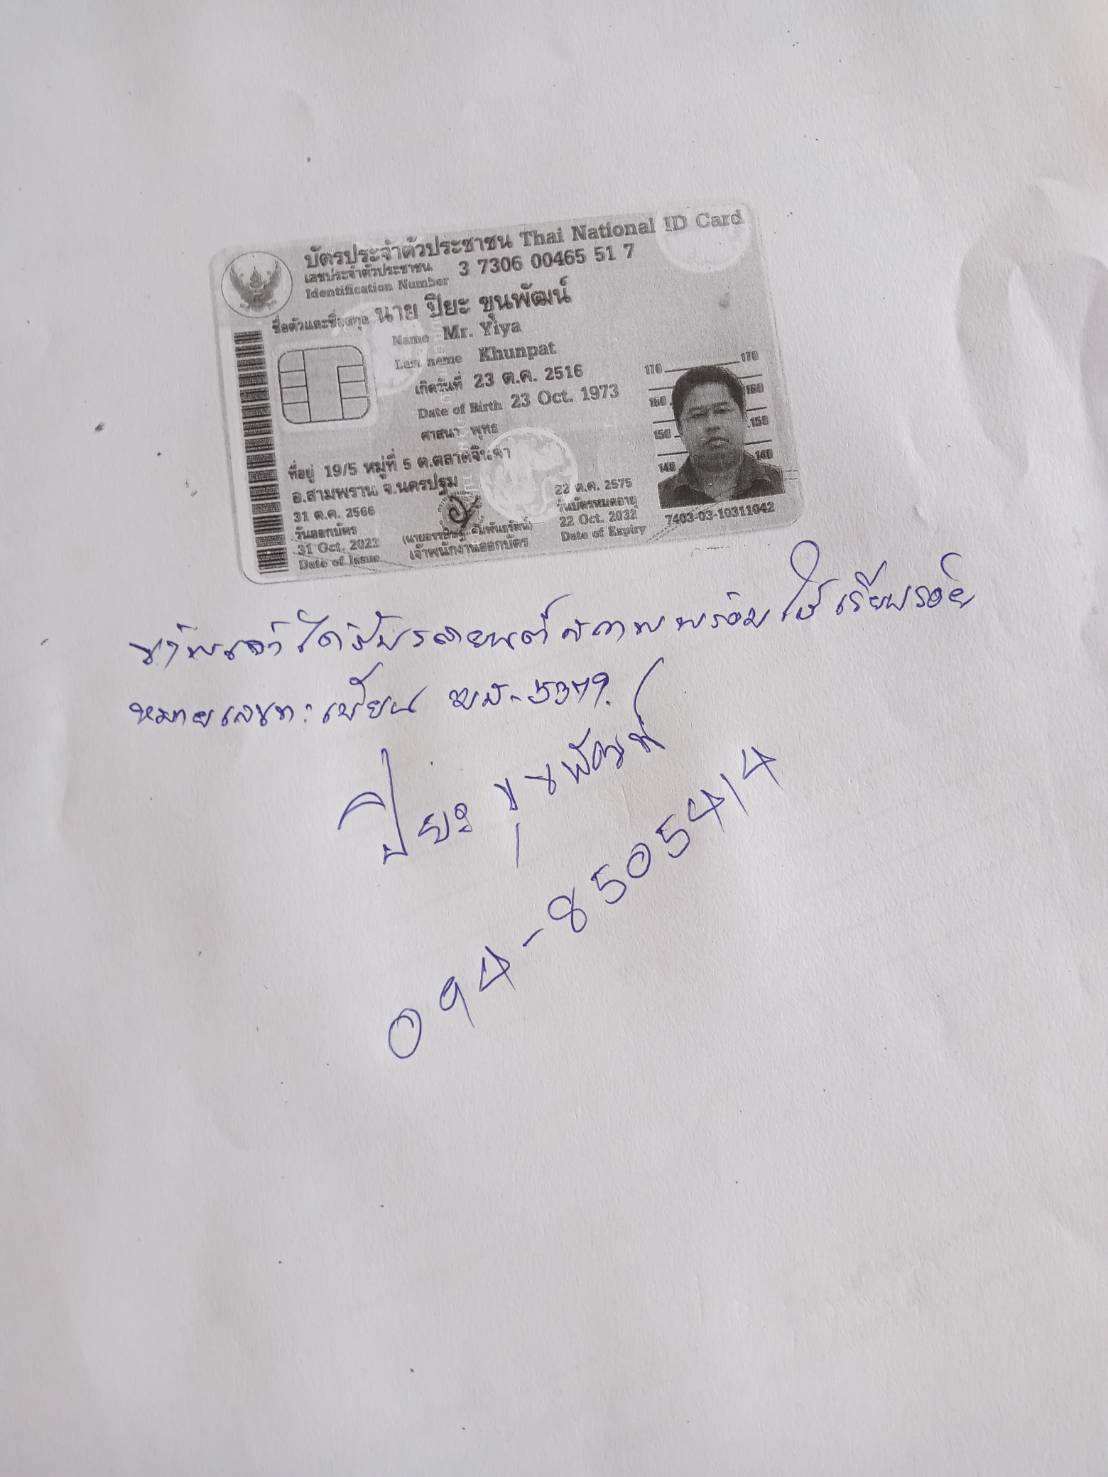 บัตรประจำตัวประชาชน Thai National ID Card
เลขประจำตัวประชาชน 3 7306 00465 51 7
Identification Number
ชื่อตัวและชื่อสกุล นาย ปิยะ ขุนพัฒน์
Name Mr. Yiya
Last name Khunpat
เกิดวันที่ 23 ต.ค. 2516
Date of Birth 23 Oct. 1973
ศาสนา พุทธ
ที่อยู่ 19/5 หมู่ที่ 5 ต.ตลาดจินดา
อ.สามพราน จ.นครปฐม
31 ต.ค. 2566
วันออกบัตร
31 Oct. 2023
Date of Issue
เจ้าพนักงานออกบัตร
22 ต.ค. 2575
วันบัตรหมดอายุ
22 Oct. 2032
Date of Expiry
170 170
160 160
150 150
140 140
7403-03-10311042
ข้าพเจ้าได้รับรถยนต์สภาพพร้อมใช้เรียบร้อย
หมายเลขทะเบียน
ปิยะ ขุนพัฒน์
094-8505414